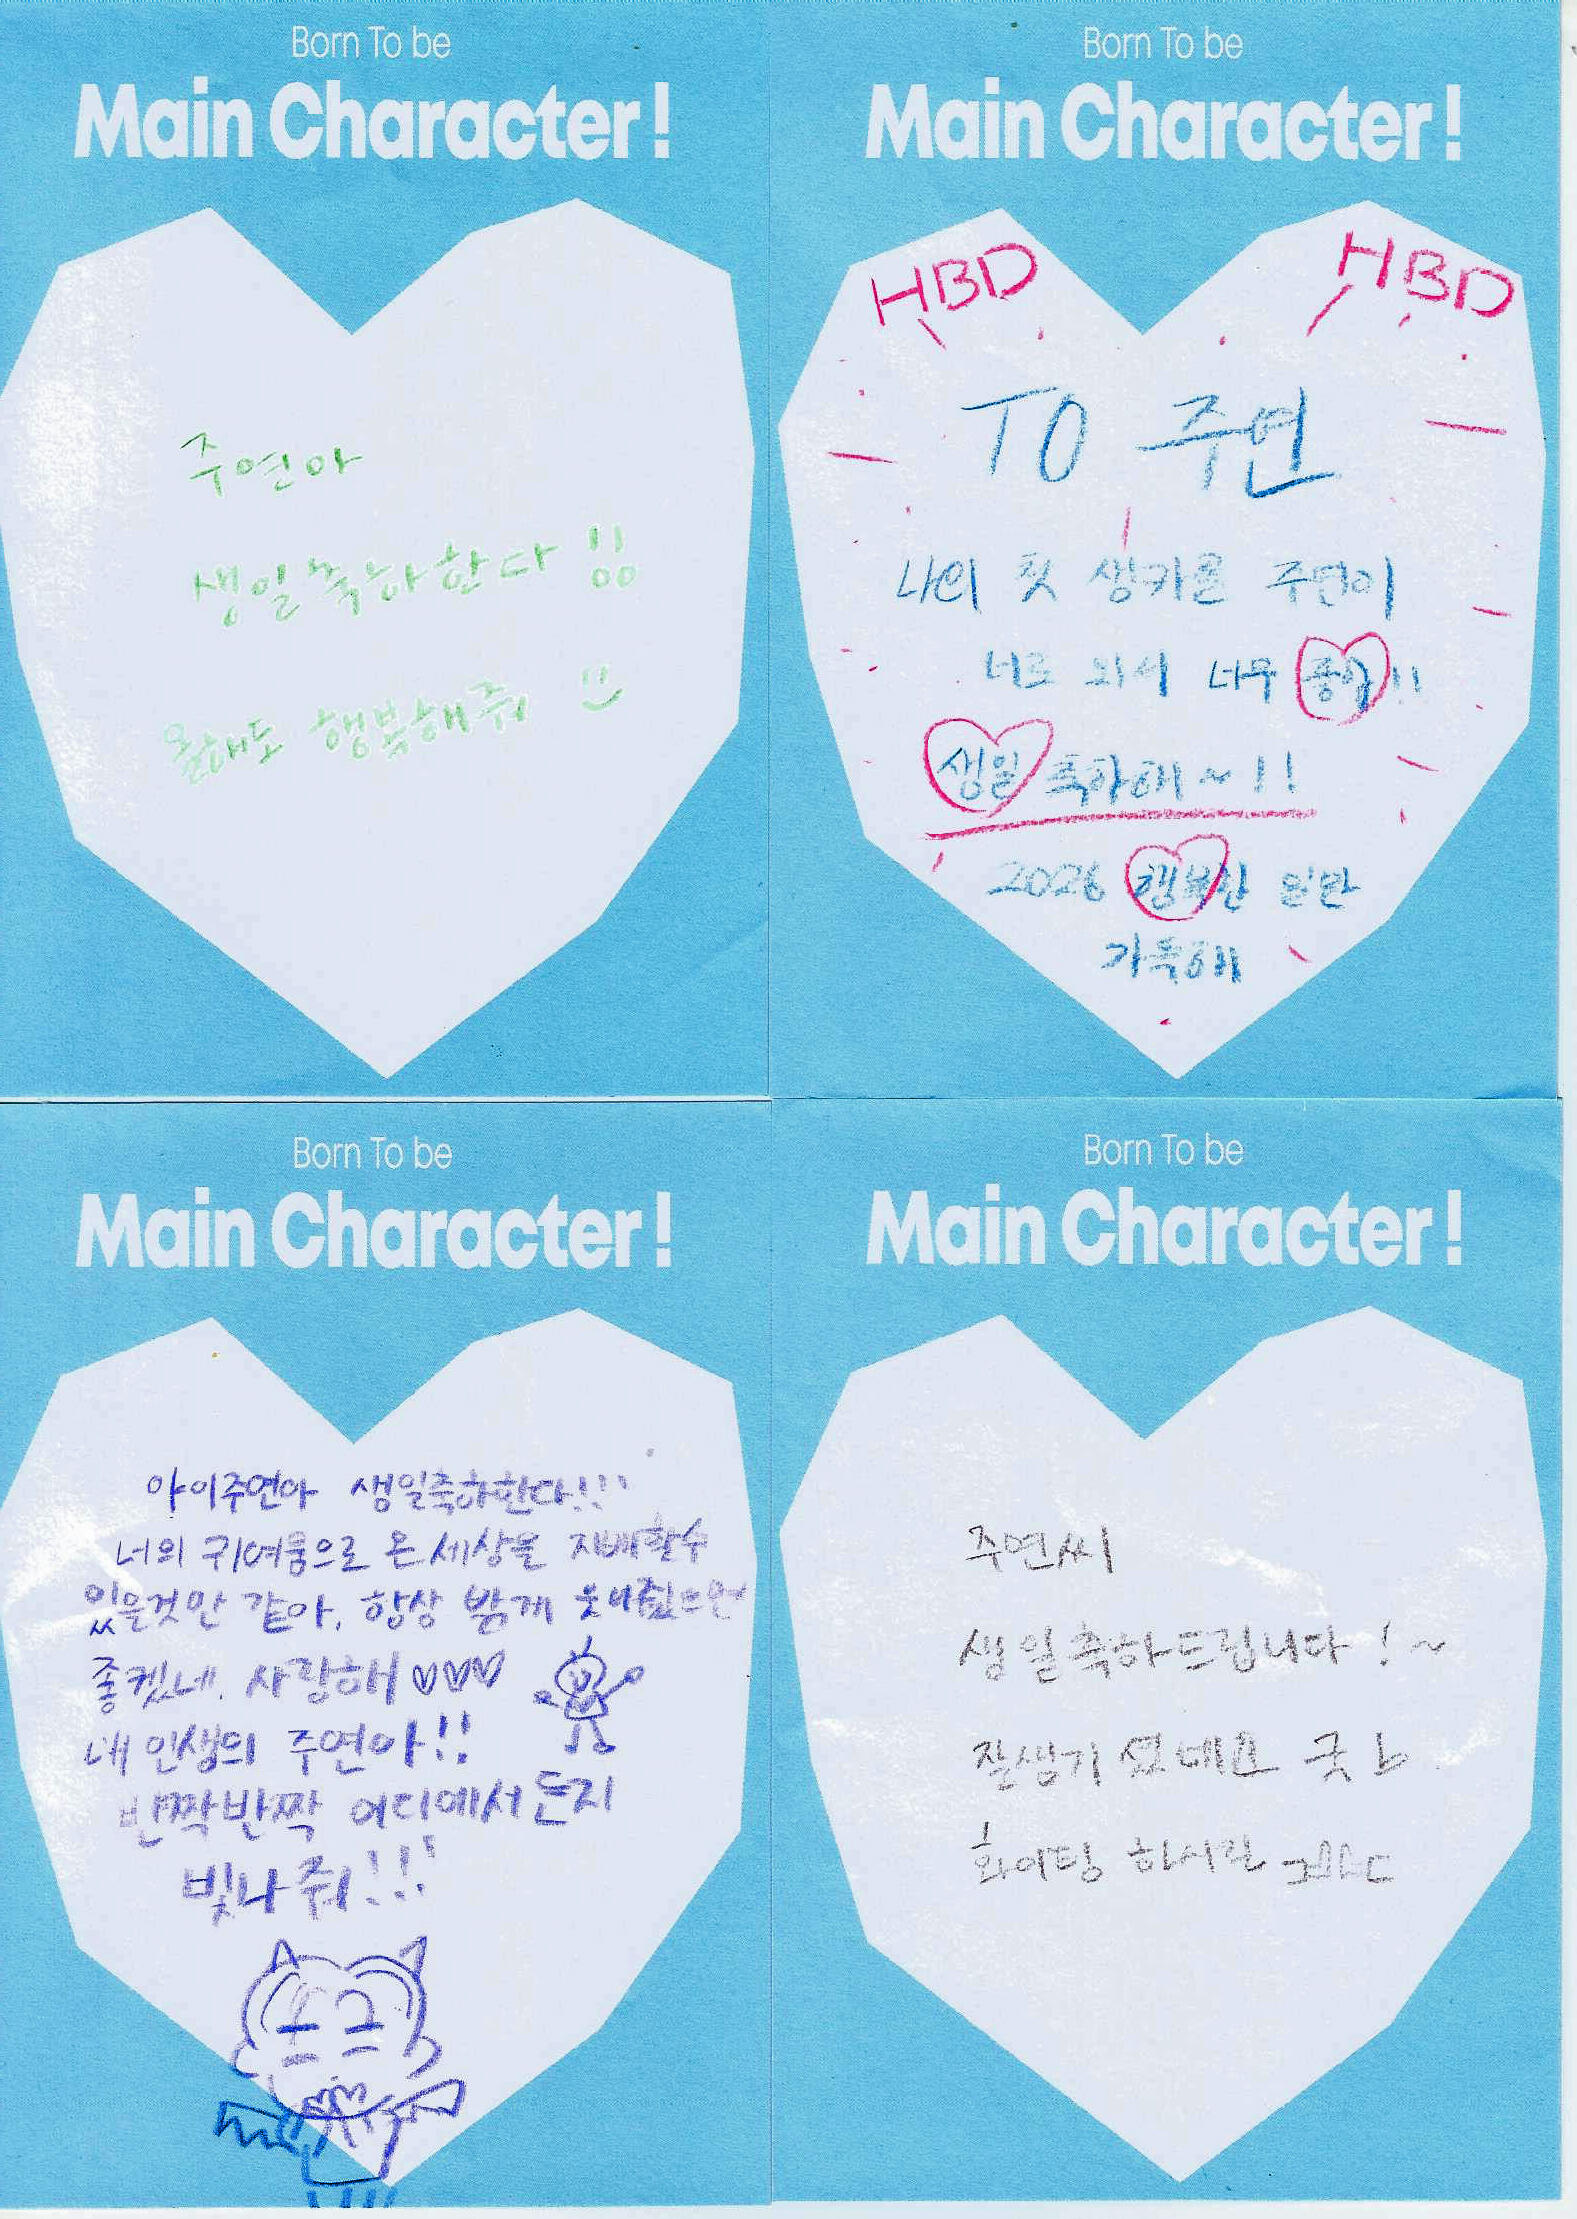 Born To be
Main Character!
주연아
생일축하한다 !!
올해도 행복해줘
Born To be
Main Character!
HBD
HBD
TO 주연
나의 첫 생카를 주연이
너로 와서 너무 좋아!!
생일 축하해~!!
2026 행복한 일만
가득해
Born To be
Main Character!
아이주연아 생일축하한다!!!
너의 귀여움으로 온 세상을 지배할수
있을것만 같아. 항상 밝게 웃어줬으면
좋겠네. 사랑해♡♡♡
내 인생의 주연아!!
반짝반짝 어디에서든지
빛나줘!!!
Born To be
Main Character!
주연씨
생일축하드립니다!~
잘생기셨네요 굿b
화이팅 하시란